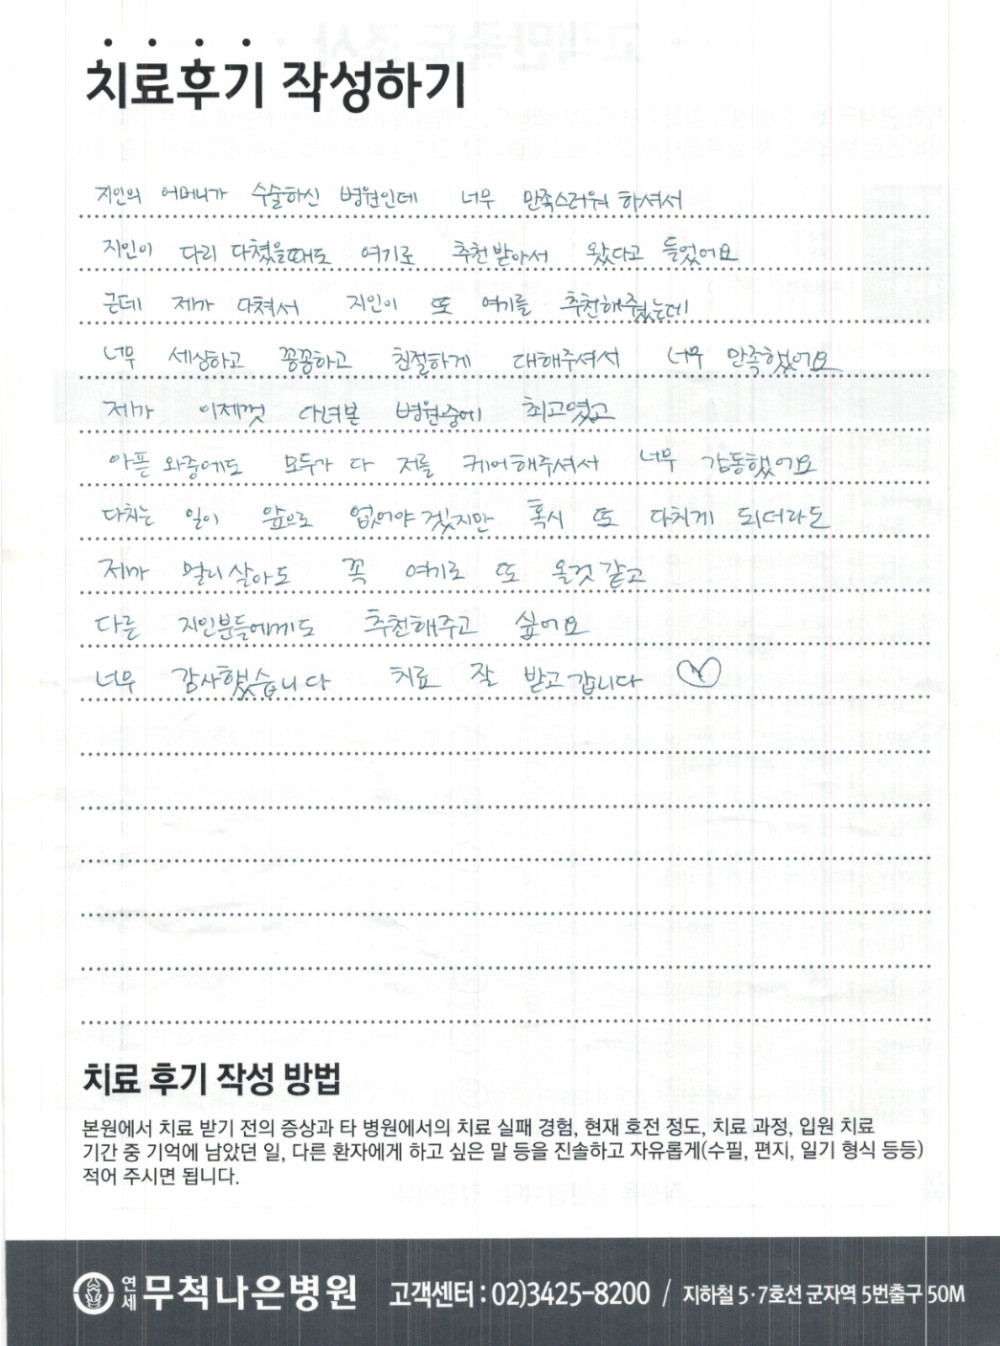 치료후기 작성하기
지인의 어머니가 수술하신 병원인데 너무 만족스러워 하셔서
지인이 다리 다쳤을때도 여기로 추천받아서 왔다고 들었어요
근데 제가 다쳐서 지인이 또 여기를 추천해줬는데
너무 세상하고 꼼꼼하고 친절하게 대해주셔서 너무 만족했어요
제가 이제껏 다녀본 병원중에 최고였고
아픈 와중에도 모두가 다 저를 케어해주셔서 너무 감동했어요
다치는 일이 앞으로 없어야겠지만 혹시 또 다치게 되더라도
제가 멀리살아도 꼭 여기로 또 올것같고
다른 지인분들에게도 추천해주고 싶어요
너무 감사했습니다 치료 잘 받고갑니다
치료 후기 작성 방법
본원에서 치료 받기 전의 증상과 타 병원에서의 치료 실패 경험, 현재 호전 정도, 치료 과정, 입원 치료
기간 중 기억에 남았던 일, 다른 환자에게 하고 싶은 말 등을 진솔하고 자유롭게(수필, 편지, 일기 형식 등등)
적어 주시면 됩니다.
연세 무척나은병원 고객센터 : 02)3425-8200 / 지하철 5·7호선 군자역 5번출구 50M